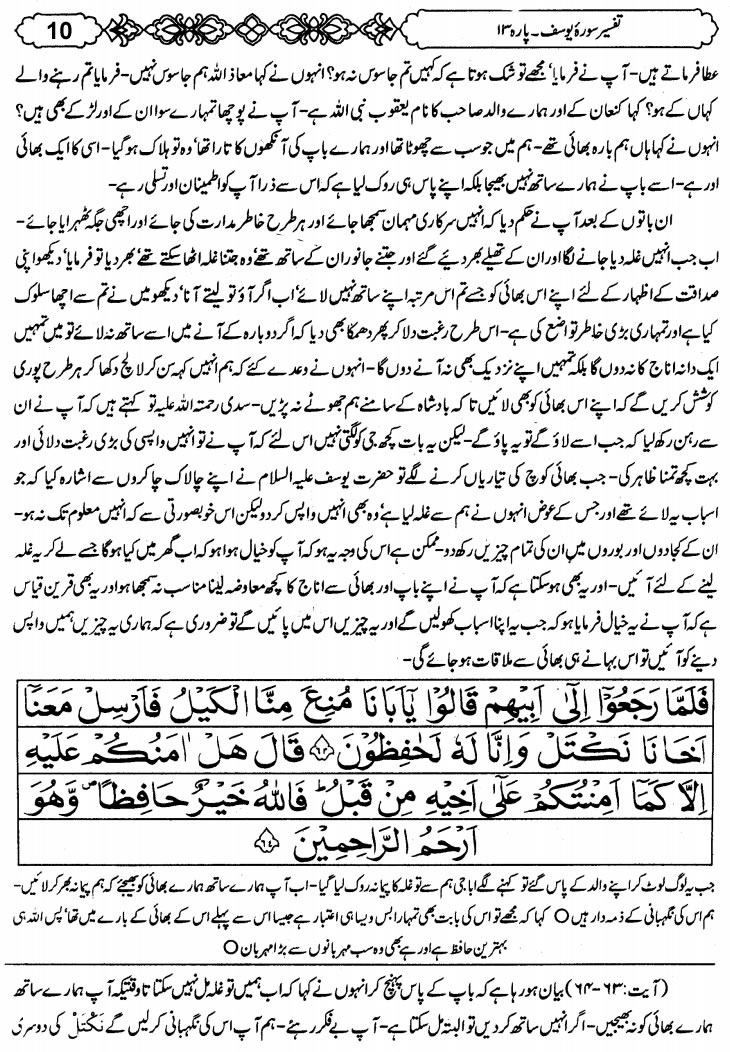 تفسیر سورۂ یوسف۔ پارہ ۱۳
10
عطا فرماتے ہیں- آپ نے فرمایا' مجھے تو شک ہوتا ہے کہ کہیں تم جاسوس نہ ہو؟ انہوں نے کہا معاذ اللہ ہم جاسوس نہیں- فرمایا تم رہنے والے
کہاں کے ہو؟ کہا کنعان کے اور ہمارے والد صاحب کا نام یعقوب نبی اللہ ہے- آپ نے پوچھا تمہارے سوا ان کے اور لڑکے بھی ہیں؟
انہوں نے کہا ہاں ہم بارہ بھائی تھے- ہم میں جو سب سے چھوٹا تھا اور ہمارے باپ کی آنکھوں کا تارا تھا' وہ تو ہلاک ہو گیا- اسی کا ایک بھائی
اور ہے- اسے باپ نے ہمارے ساتھ نہیں بھیجا بلکہ اپنے پاس ہی روک لیا ہے کہ اس سے ذرا آپ کو اطمینان اور تسلی رہے-
ان باتوں کے بعد آپ نے حکم دیا کہ انہیں سرکاری مہمان سمجھا جائے اور ہر طرح خاطر مدارت کی جائے اور اچھی جگہ ٹھہرایا جائے-
اب جب انہیں غلہ دیا جانے لگا اور ان کے تھیلے بھر دیئے گئے اور جتنے جانور ان کے ساتھ تھے' وہ جتنا غلہ اٹھا سکتے تھے' بھر دیا تو فرمایا' دیکھو اپنی
صداقت کے اظہار کے لئے اپنے اس بھائی کو جسے تم اس مرتبہ اپنے ساتھ نہیں لائے' اب اگر آؤ تو لیتے آنا' دیکھو میں نے تم سے اچھا سلوک
کیا ہے اور تمہاری بڑی خاطر تواضع کی ہے- اس طرح رغبت دلا کر پھر دھمکا بھی دیا کہ اگر دوبارہ کے آنے میں اسے ساتھ نہ لائے تو میں تمہیں
ایک دانہ اناج کا نہ دوں گا بلکہ تمہیں اپنے نزدیک بھی نہ آنے دوں گا- انہوں نے وعدے کئے کہ ہم انہیں کہہ سن کر لالچ دکھا کر ہر طرح پوری
کوشش کریں گے کہ اپنے اس بھائی کو بھی لائیں تا کہ بادشاہ کے سامنے ہم جھوٹے نہ پڑیں- سدی رحمتہ اللہ علیہ تو کہتے ہیں کہ آپ نے ان
سے رہن رکھ لیا کہ جب اسے لاؤ گے تو یہ پاؤ گے- لیکن یہ بات کچھ جی کو لگتی نہیں اس لئے کہ آپ نے تو انہیں واپسی کی بڑی رغبت دلائی اور
بہت کچھ تمنا ظاہر کی- جب بھائی کوچ کی تیاریاں کرنے لگے تو حضرت یوسف علیہ السلام نے اپنے چالاک چاکروں سے اشارہ کیا کہ جو
اسباب یہ لائے تھے اور جس کے عوض انہوں نے ہم سے غلہ لیا ہے' وہ بھی انہیں واپس کر دو لیکن اس خوبصورتی سے کہ انہیں معلوم تک نہ ہو-
ان کے کجاووں اور بوروں میں ان کی تمام چیزیں رکھ دو- ممکن ہے اس کی وجہ یہ ہو کہ آپ کو خیال ہوا ہو کہ اب گھر میں کیا ہوگا جسے لے کر یہ غلہ
لینے کے لئے آئیں- اور یہ بھی ہو سکتا ہے کہ آپ نے اپنے باپ اور بھائی سے اناج کا کچھ معاوضہ لینا مناسب نہ سمجھا ہو اور یہ بھی قرین قیاس
ہے کہ آپ نے یہ خیال فرمایا ہو کہ جب یہ اپنا اسباب کھولیں گے اور یہ چیزیں اس میں پائیں گے تو ضروری ہے کہ ہماری یہ چیزیں ہمیں واپس
دینے کو آئیں تو اس بہانے ہی بھائی سے ملاقات ہو جائے گی-
فَلَمَّا رَجَعُوْٓا اِلٰٓى اَبِيْهِمْ قَالُوْا يٰٓاَبَانَا مُنِعَ مِنَّا الْكَيْلُ فَاَرْسِلْ مَعَنَآ
اَخَانَا نَكْتَلْ وَاِنَّا لَهٗ لَحٰفِظُوْنَ ۝۶۳ قَالَ هَلْ اٰمَنُكُمْ عَلَيْهِ
اِلَّا كَمَآ اَمِنْتُكُمْ عَلٰٓى اَخِيْهِ مِنْ قَبْلُ ؕ فَاللّٰهُ خَيْرٌ حٰفِظًا ۪ وَّهُوَ
اَرْحَمُ الرّٰحِمِيْنَ ۝۶۴
جب یہ لوگ لوٹ کر اپنے والد کے پاس گئے تو کہنے لگے ابا جی ہم سے تو غلہ کا پیمانہ روک لیا گیا- اب آپ ہمارے ساتھ ہمارے بھائی کو بھیجئے کہ ہم پیمانہ بھر کر لائیں-
ہم اس کی نگہبانی کے ذمہ دار ہیں ○ کہا کہ مجھے تو اس کی بابت بھی تمہارا بس ویسا ہی اعتبار ہے جیسا اس سے پہلے اس کے بھائی کے بارے میں تھا' پس اللہ ہی
بہترین حافظ ہے اور ہے بھی وہ سب مہربانوں سے بڑا مہربان ○
(آیت:۶۳-۶۴) بیان ہو رہا ہے کہ باپ کے پاس پہنچ کر انہوں نے کہا کہ اب ہمیں تو غلہ مل نہیں سکتا تاوقتیکہ آپ ہمارے ساتھ
ہمارے بھائی کو نہ بھیجیں- اگر انہیں ساتھ کر دیں تو البتہ مل سکتا ہے- آپ بے فکر رہئے- ہم آپ اس کی نگہبانی کر لیں گے نَكْتَلْ کی دوسری